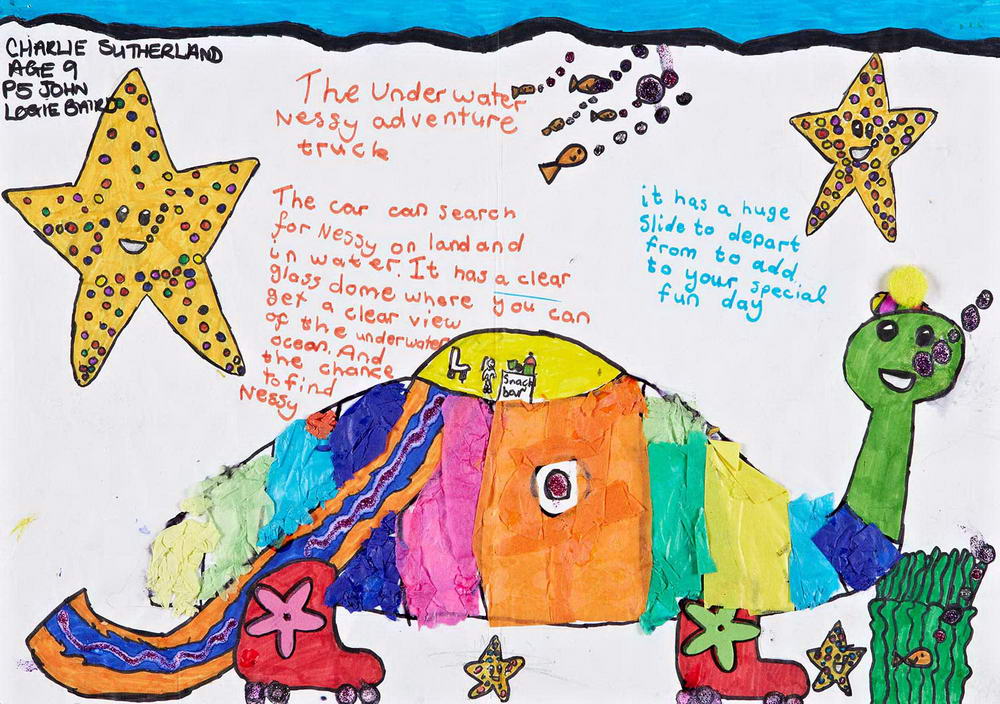 CHARLIE SUTHERLAND
AGE 9
P5 JOHN
LOGIE BAIRD
The Underwater
Nessy adventure
truck
The car can search
for Nessy on land and
in water. It has a clear
glass dome where you can
get a clear view
of the underwater
ocean. And
the chance
to find
Nessy
it has a huge
Slide to depart
from to add
to your special
fun day
Snack
bar